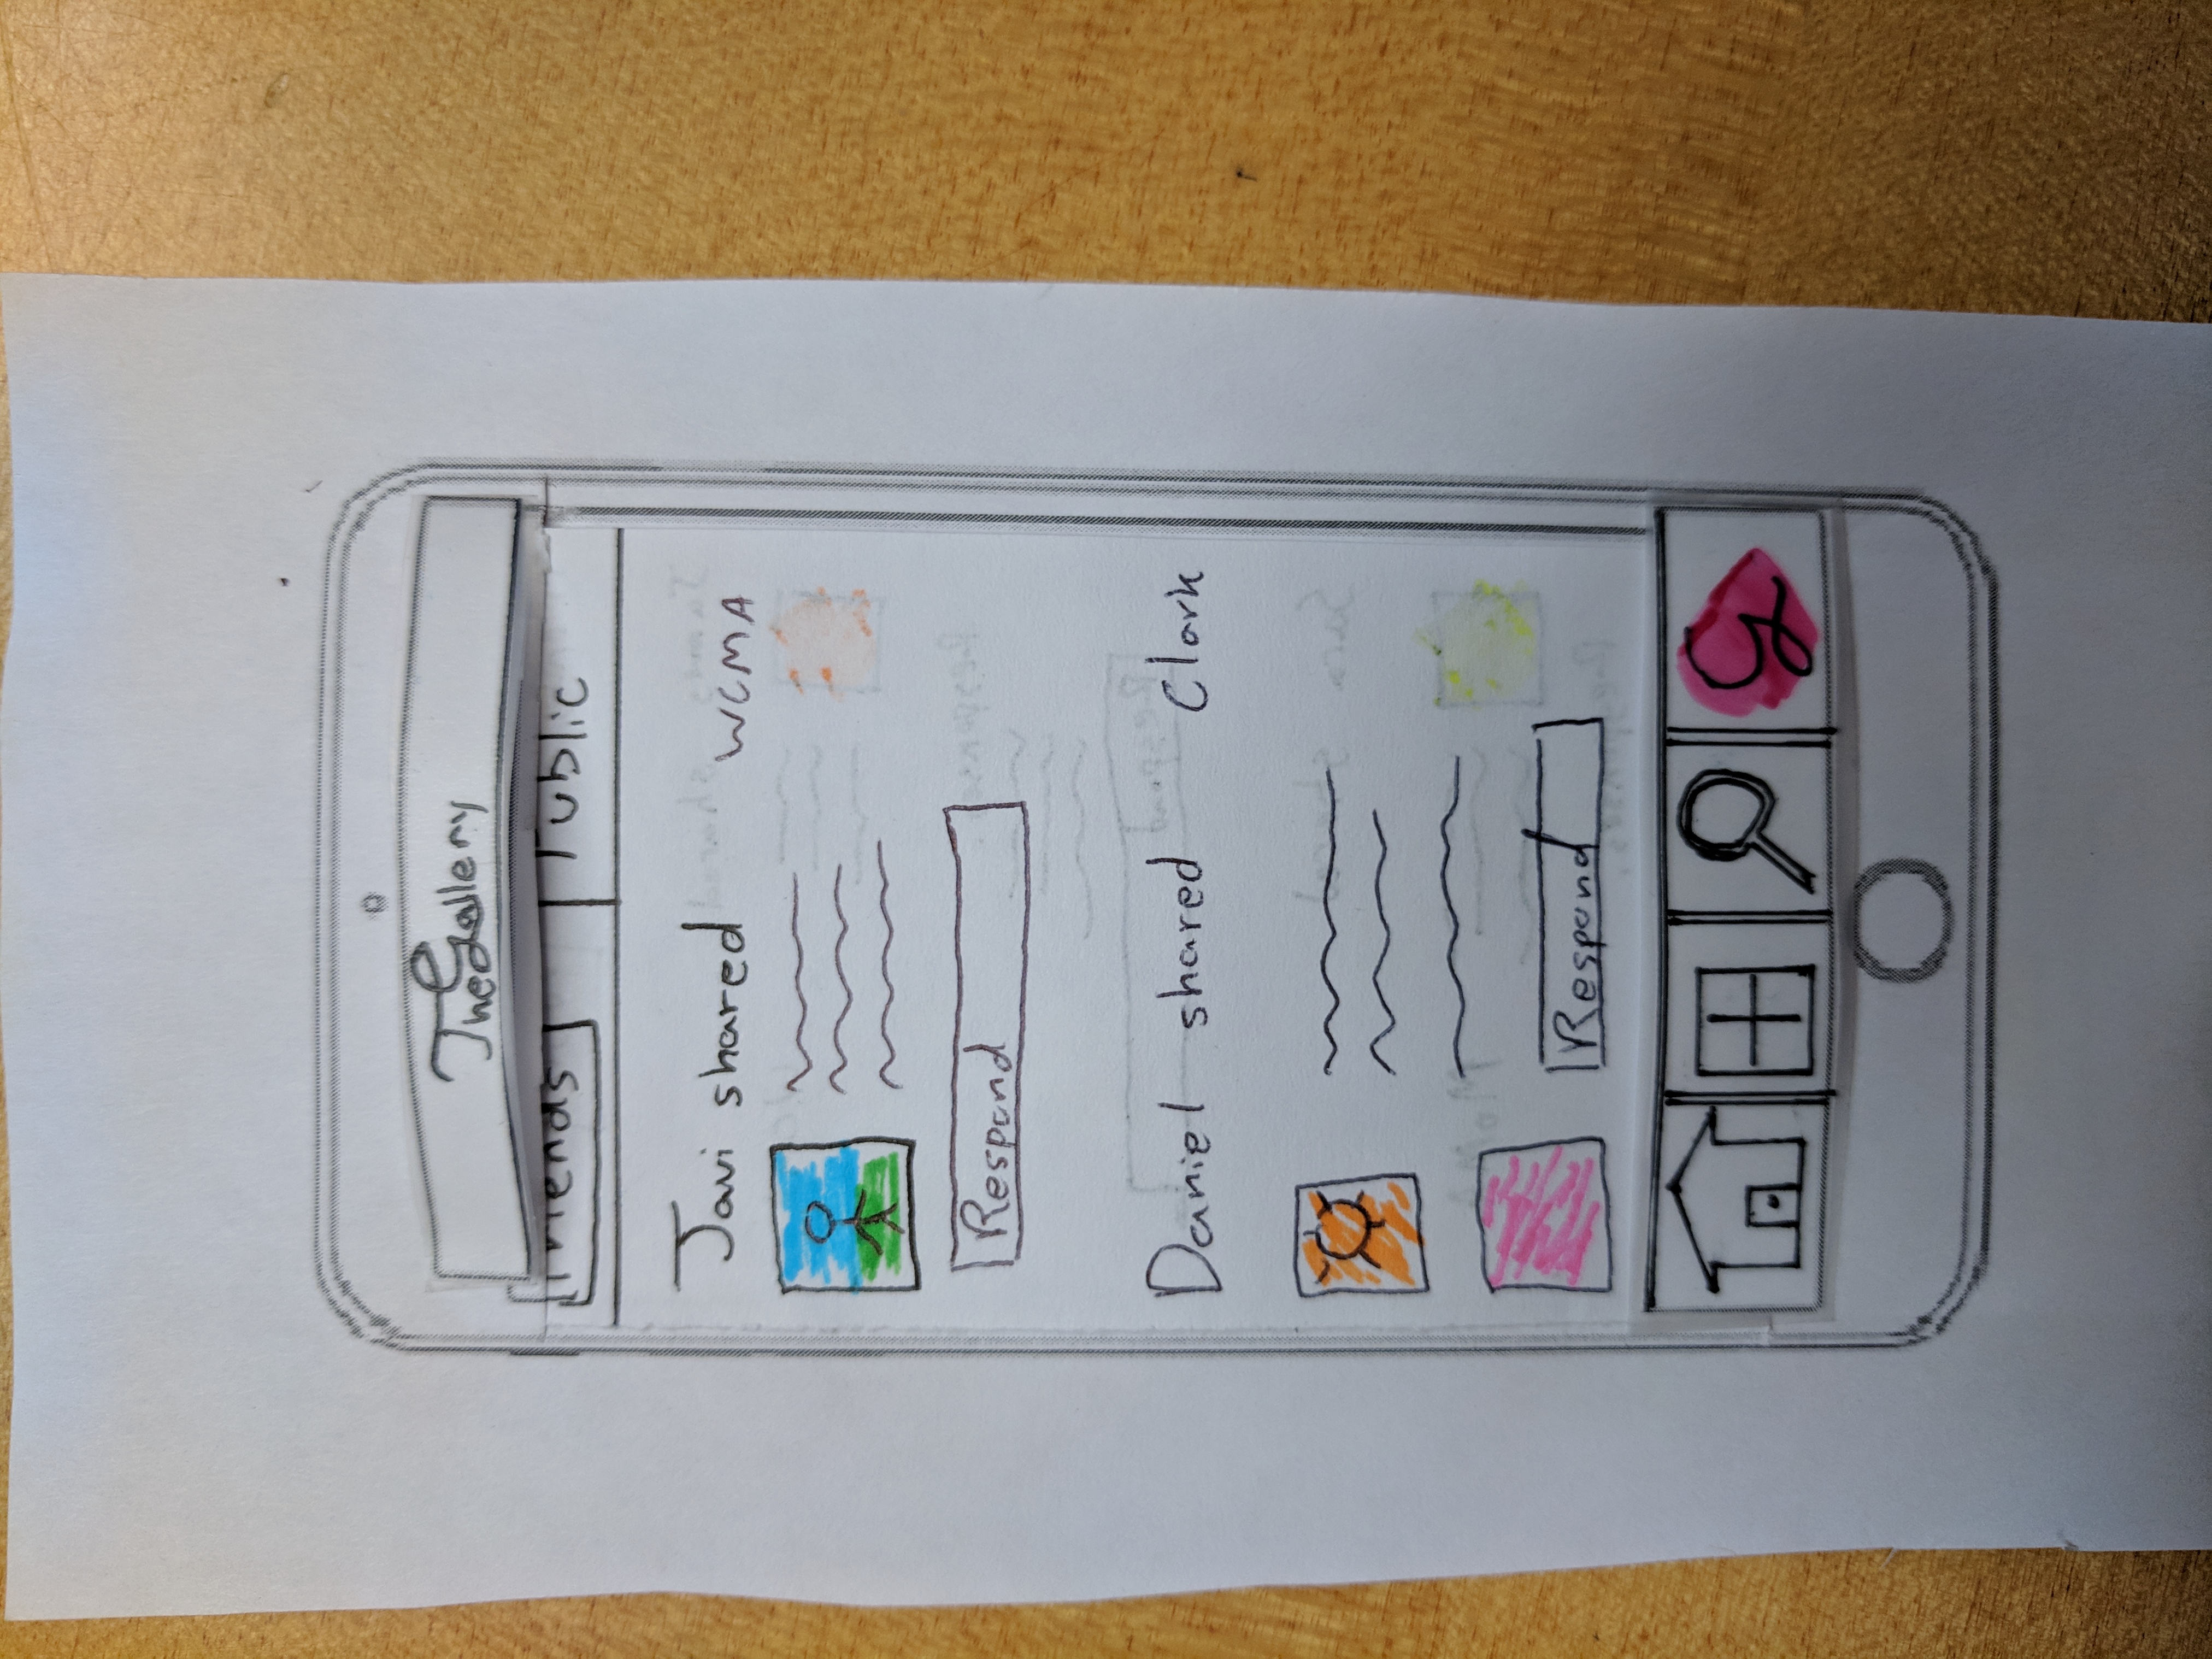 The Gallery
Friends Public
Javi shared WCMA
Respond
Daniel shared Clark
Respond